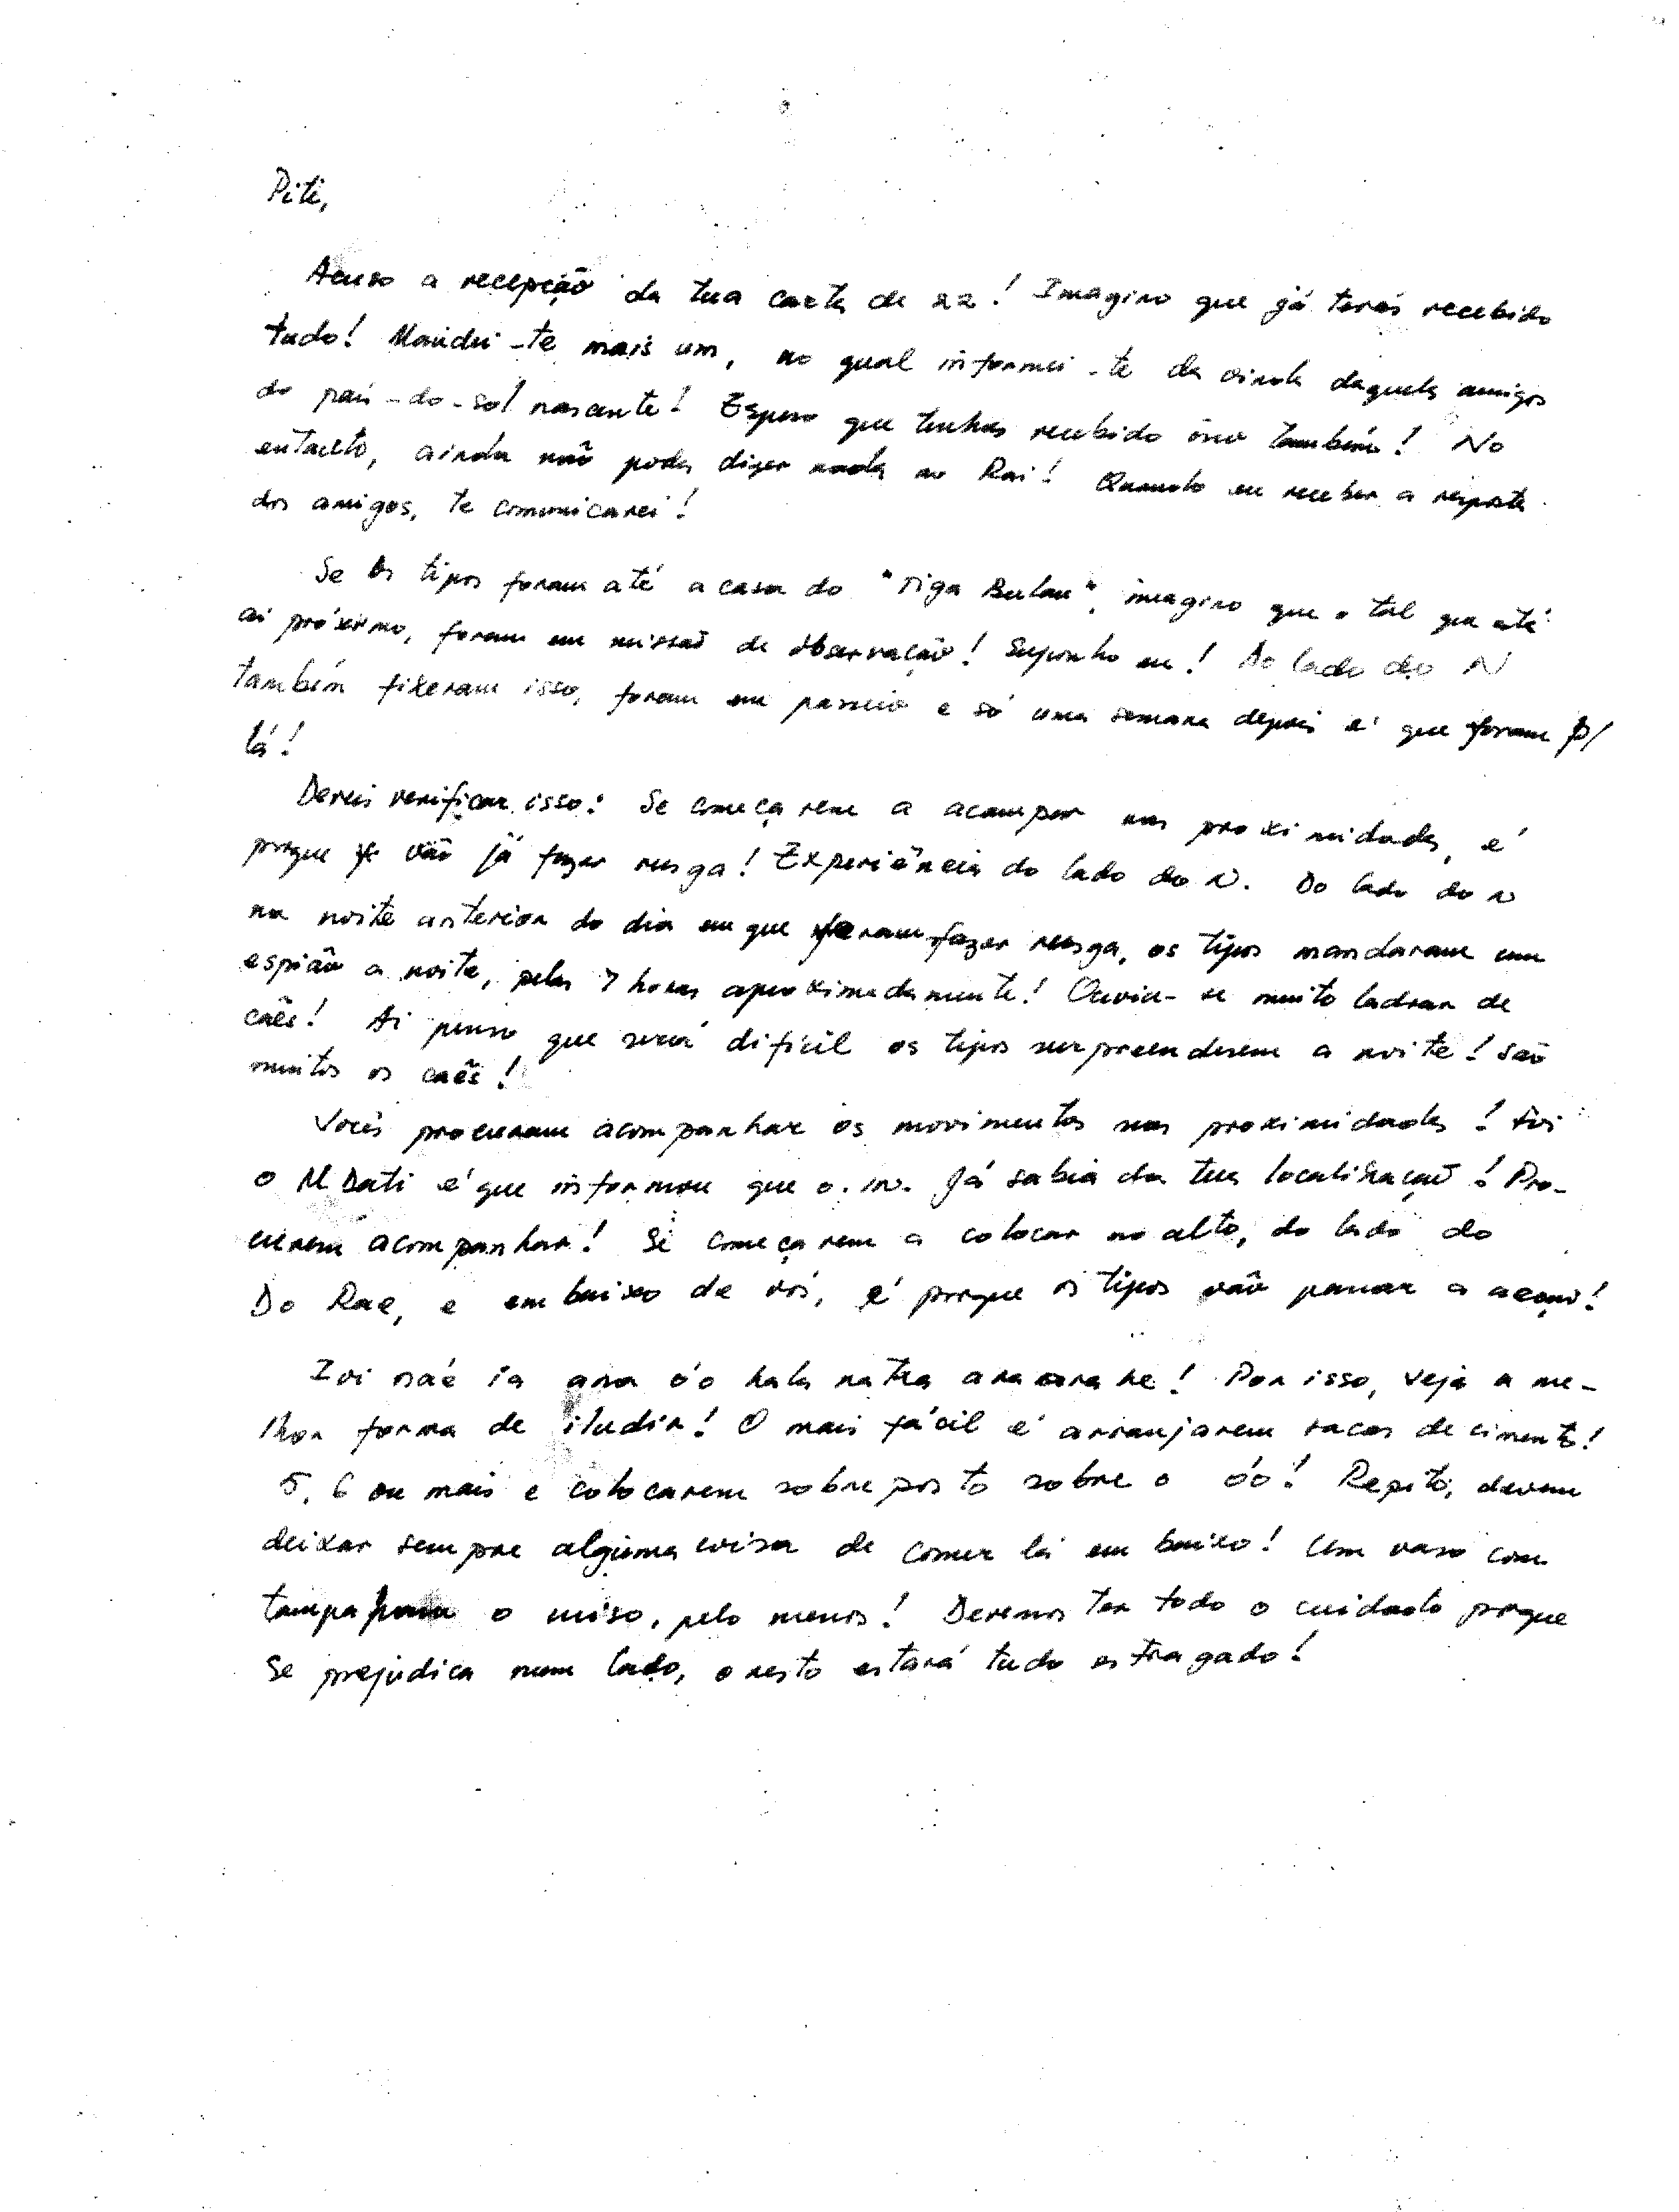 Piti,
Acuso a recepção da tua carta de 22! Imagino que já terás recebido
tudo! Mandei-te mais um, no qual informei-te da vinda daqueles amigos
do país-do-sol nascente! Espero que tenhas recebido isso também! No
entanto, ainda não podes dizer nada ao Rai! Quando eu receber a resposta
dos amigos, te comunicarei!
Se os tipos foram até a casa do "Tiga Bulan", imagino que o tal que até
aí próximo, foram em missão de observação! Suponho eu! Ao lado do N
também fizeram isso, foram em passeio e só uma semana depois é que foram p/
lá!
Deveis verificar isso: Se começarem a acampar nas proximidades, é
porque vão já fazer rusga! Experiência do lado do N. Do lado do N
na noite anterior do dia em que foram fazer rusga, os tipos mandaram um
espião a noite, pelas 7 horas aproximadamente! Ouvia-se muito ladrar de
cães! Aí penso que será difícil os tipos surpreenderem a noite! São
muitos os cães!
Vocês procuram acompanhar os movimentos nas proximidades! Foi
o M Dati é que informou que o. in. já sabia da tua localização! Pro-
curem acompanhar! Se começarem a colocar no alto, do lado do
Do Rae, e em baixo de vós, é porque os tipos vão passar a acção!
Ivi naé ia ana óo hala natea ana nahe! Por isso, veja a me-
lhor forma de iludir! O mais fácil é arranjarem sacos de cimento!
5, 6 ou mais e colocarem sobreposto sobre o óo! Repito, devem
deixar sempre alguma coisa de comer lá em baixo! Um vaso com
tampa para o miso, pelo menos! Devemos ter todo o cuidado porque
se prejudica num lado, o resto estará tudo estragado!